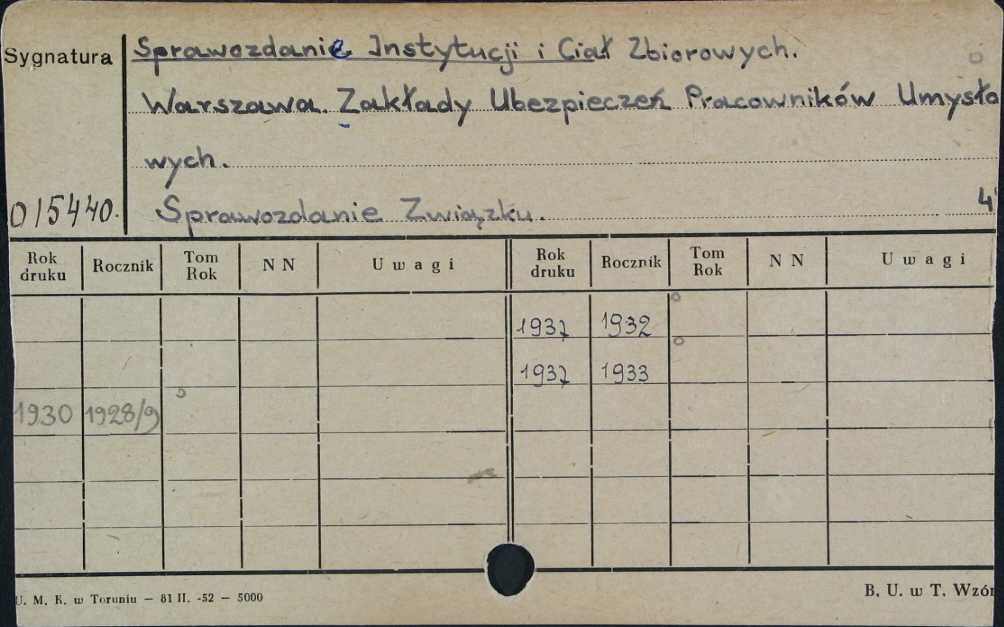 Sygnatura
Sprawozdanie Instytucji i Ciał Zbiorowych.
Warszawa. Zakłady Ubezpieczeń Pracowników Umysło
wych.
015440.
Sprawozdanie Związku. 4
Rok druku Rocznik Tom Rok N N Uwagi Rok druku Rocznik Tom Rok N N Uwagi
1937 1932
1937 1933
1930 1928/9
U. M. K. w Toruniu — 81 II. -52 — 5000
B. U. w T. Wzór